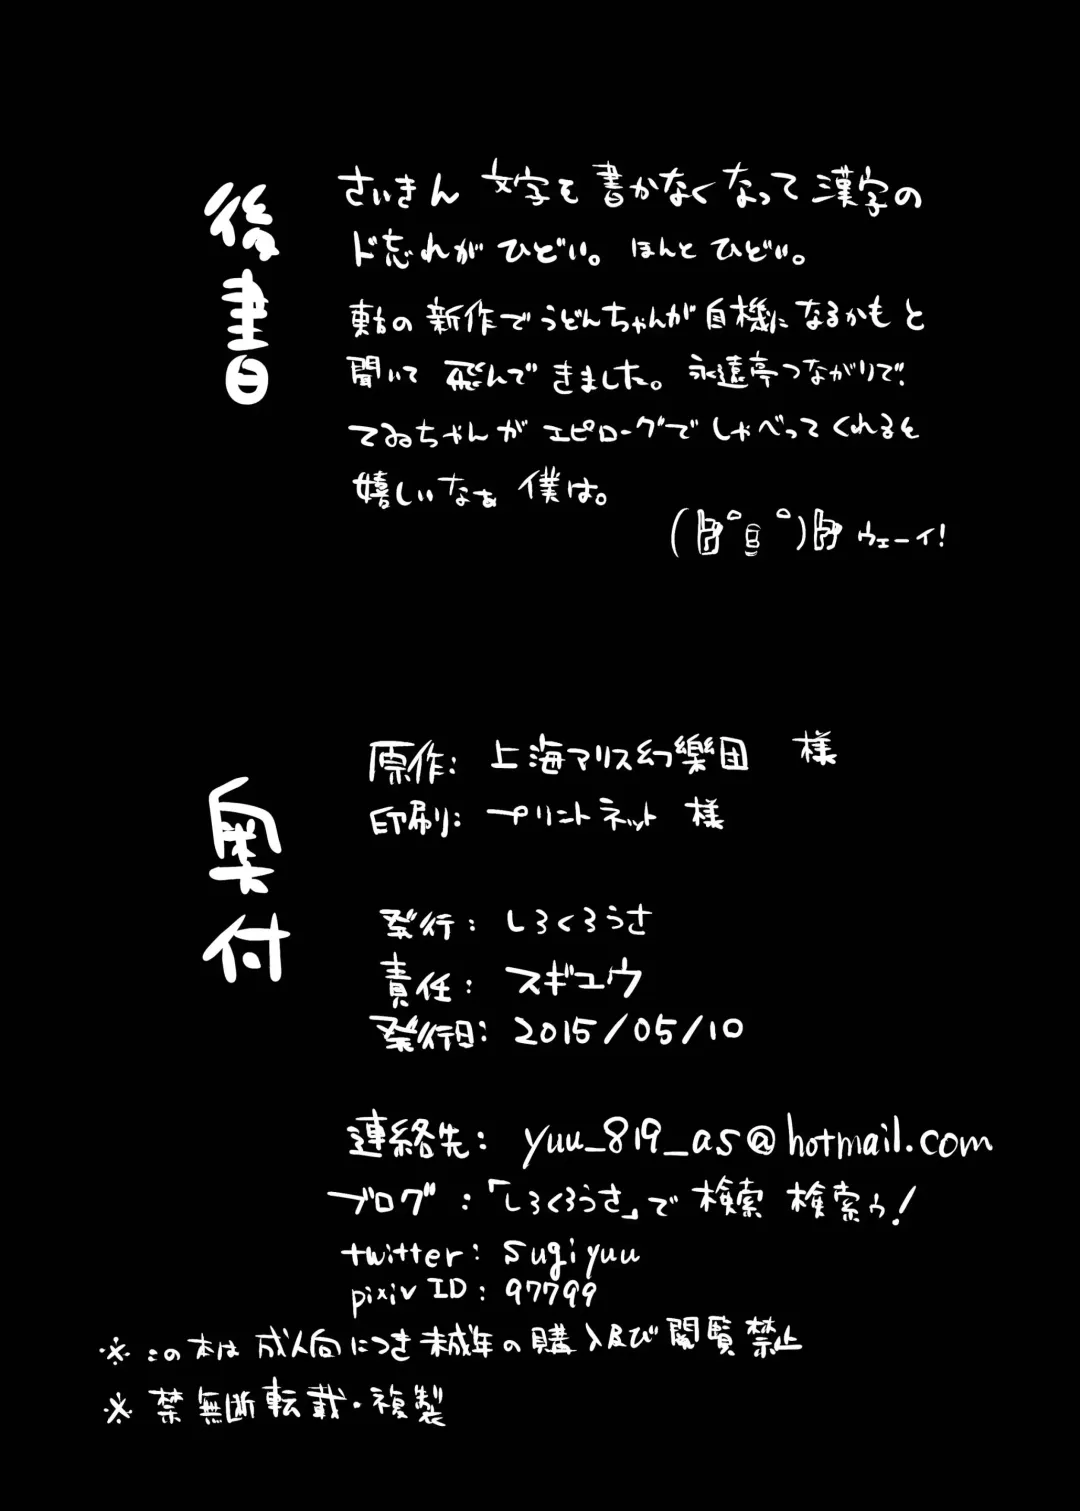 後書
さいきん 文字を書かなくなって漢字の
ド忘れがひどい。ほんとひどい。
東方の新作でうどんちゃんが自機になるかもと
聞いて飛んできました。永遠亭つながりで
てゐちゃんがエピローグでしゃべってくれると
嬉しいなぁ 僕は。
ウェーイ!
奥付
原作: 上海アリス幻樂団 様
印刷: プリントネット 様
発行: しろくろうさ
責任: スギユウ
発行日: 2015/05/10
連絡先: yuu_819_as@hotmail.com
ブログ:「しろくろうさ」で 検索 検索ゥ!
twitter: sugiyuu
pixiv ID: 97799
※この本は成人向につき未成年の購入及び閲覧禁止
※禁無断転載・複製